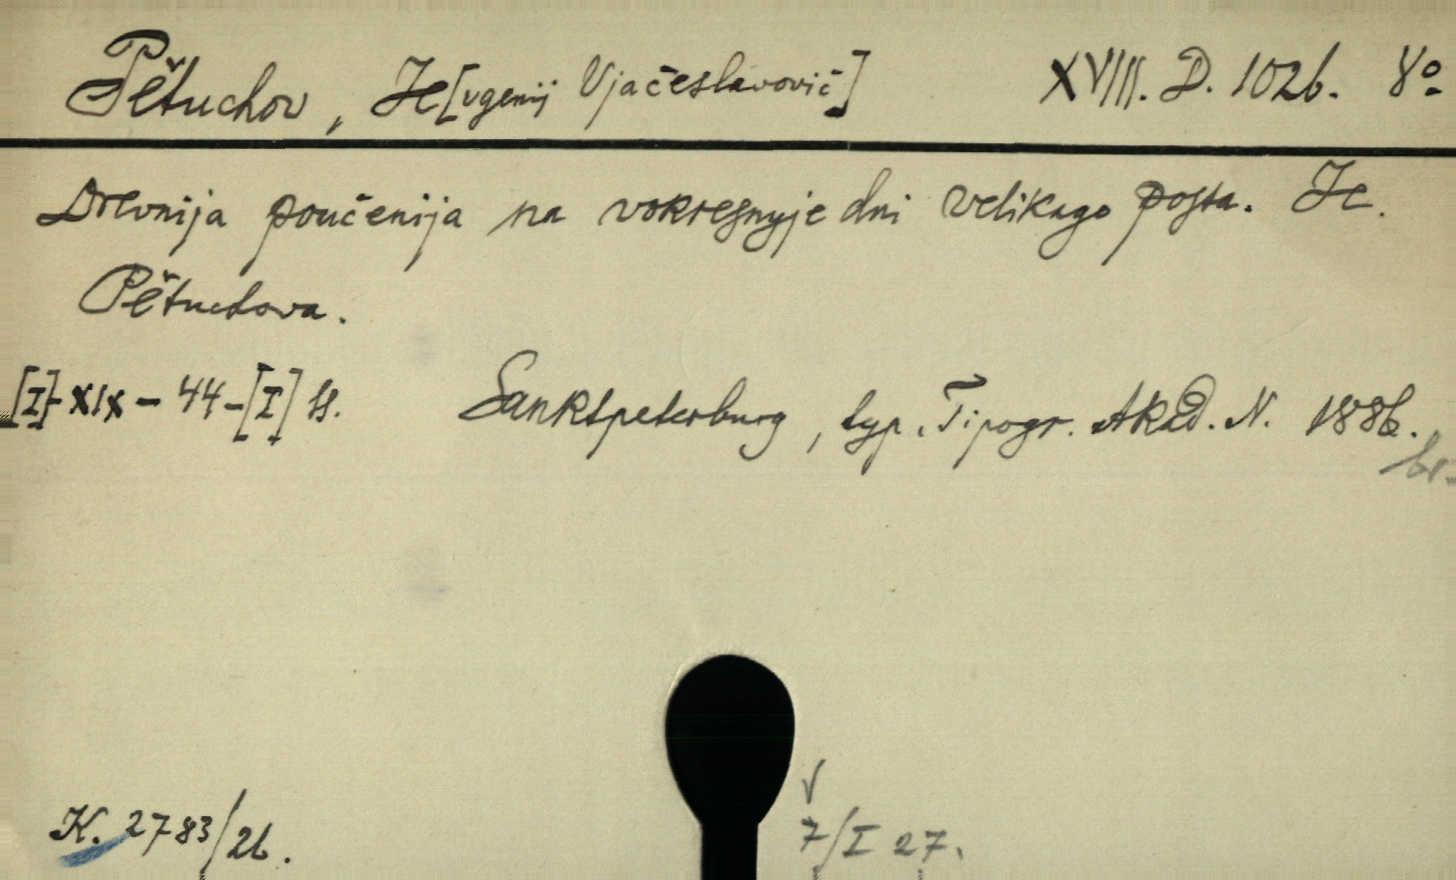 Pětuchov, Je[vgenij Vjačeslavovič] XVIII. D. 102b. 8º
Drevnija poučenija na voskresnyje dni velikago posta. Je.
Pětuchova.
[I]-XIX-44-[I] ll. Sanktpeterburg, typ. Tipogr. Akad. N. 1886.
br.
K. 2783/26.
7/I 27.